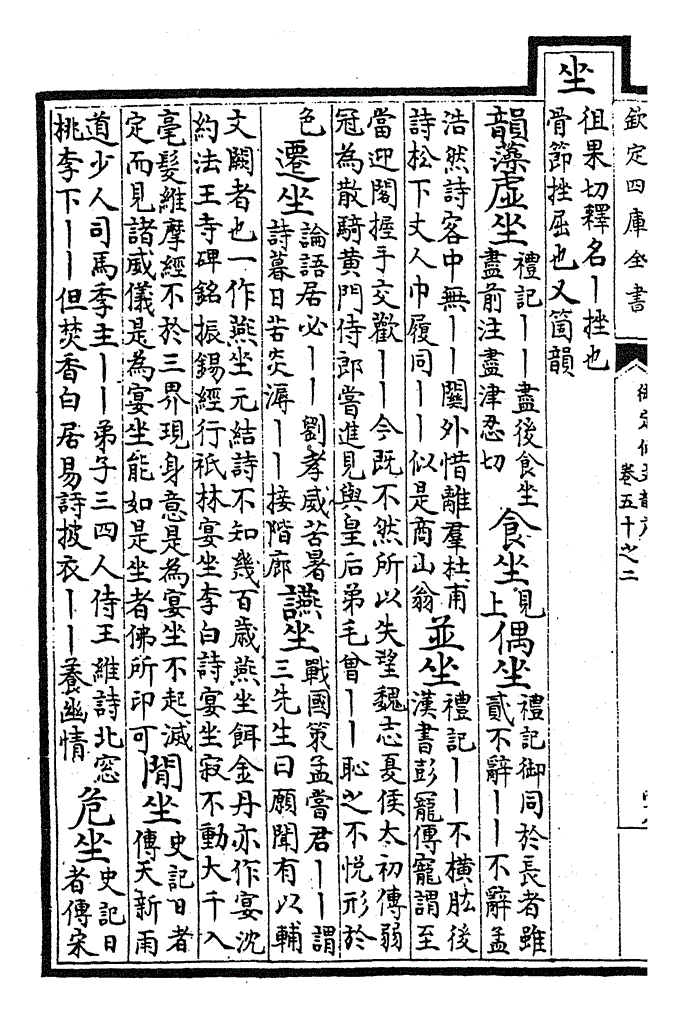 欽定四庫全書
卷五十之二
坐
徂果切釋名丨挫也
骨節挫屈也又箇韻
韻藻虛坐
禮記丨丨盡後食坐
盡前注盡津忍切
食坐
見
上
偶坐
禮記御同於長者雖
貳不辭丨丨不辭孟
浩然詩客中無丨丨關外惜離羣杜甫
詩松下丈人巾履同丨丨似是商山翁
並坐
禮記丨丨不橫肱後
漢書彭寵傳寵謂至
當迎閤握手交歡丨丨今既不然所以失望魏志夏侯太初傳弱
冠為散騎黃門侍郎嘗進見與皇后弟毛曾丨丨恥之不悅形於
色
遷坐
論語居必丨丨劉孝威苦暑
詩暮日苦炎溽丨丨接階廊
讌坐
戰國策孟嘗君丨丨謂
三先生曰願聞有以輔
文闕者也一作燕坐元結詩不知幾百歲燕坐餌金丹亦作宴沈
約法王寺碑銘振錫經行祇林宴坐李白詩宴坐寂不動大千入
毫髮維摩經不於三界現身意是為宴坐不起滅
定而見諸威儀是為宴坐能如是坐者佛所印可
閒坐
史記日者
傳天新雨
道少人司馬季主丨丨弟子三四人侍王維詩北窓
桃李下丨丨但焚香白居易詩披衣丨丨養幽情
危坐
史記日
者傳宋